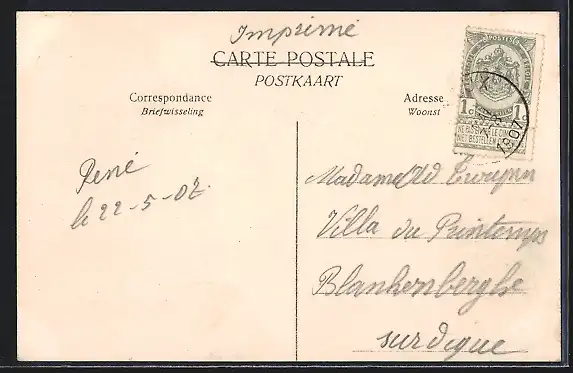 Imprimé
CARTE POSTALE
POSTKAART
Correspondance
Briefwisseling
Adresse
Woonst
POSTES
1c 1c
NE PAS LIVRER LE DIMANCHE
NIET BESTELLEN OP ZONDAG
1907
René
le 22-5-07.
Madame
Villa du Printemps
Blankenberghe
sur digue